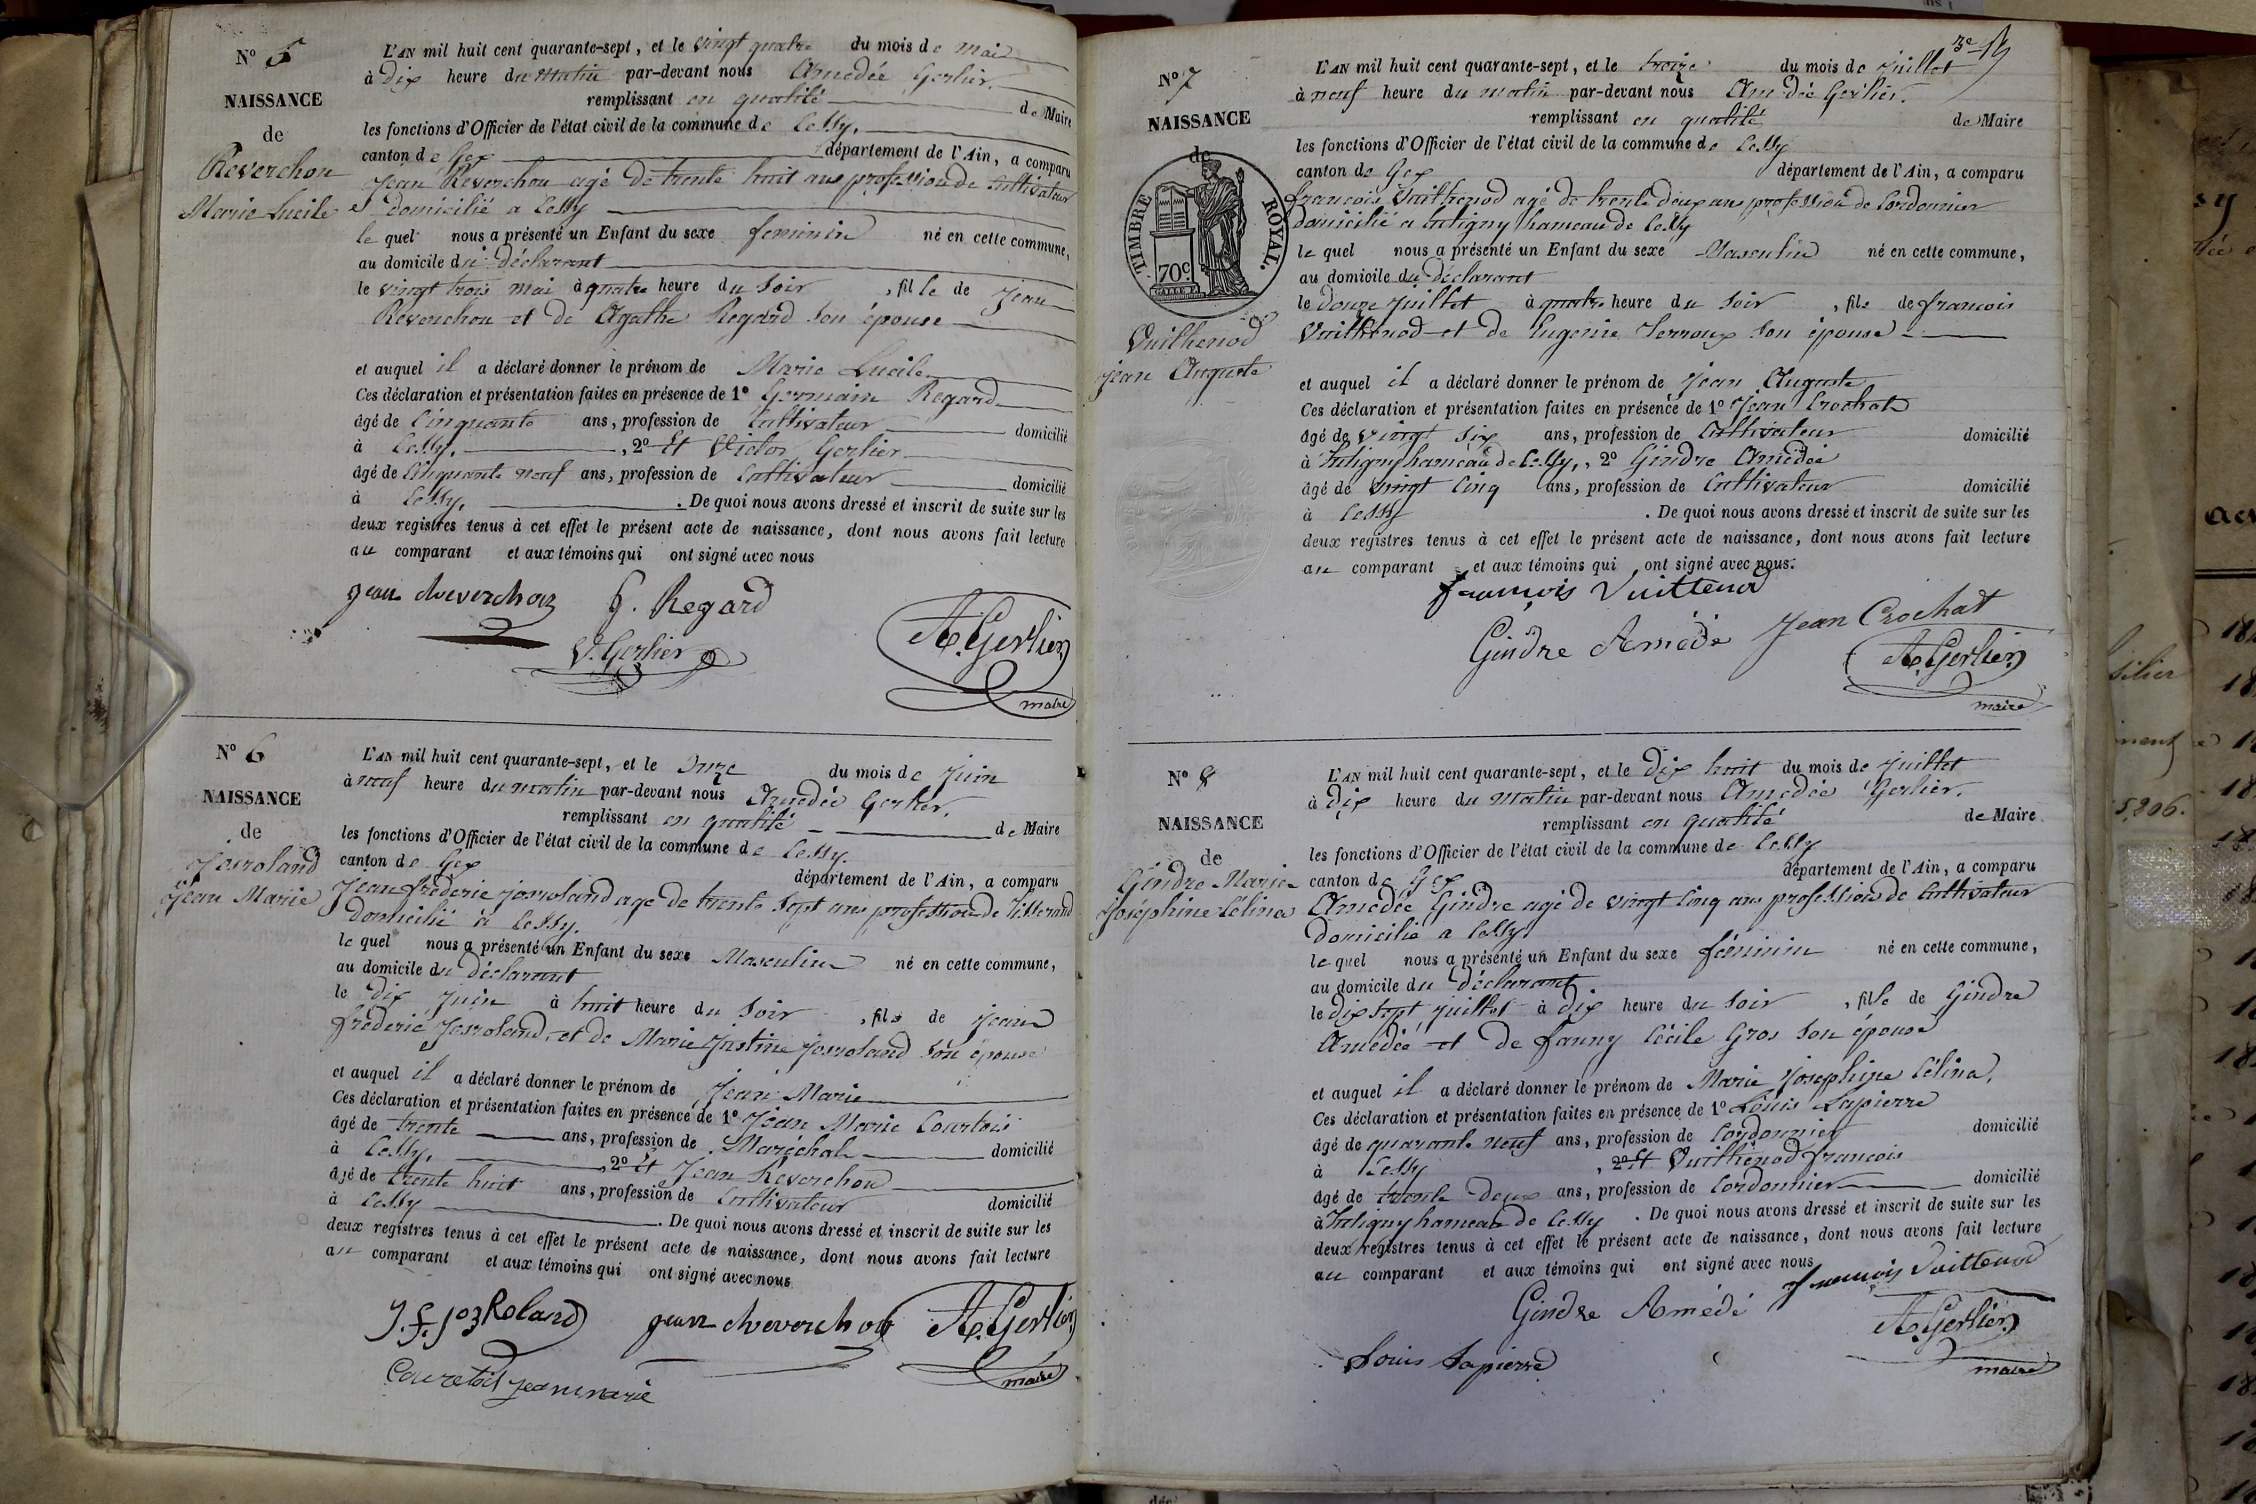 N° 5
NAISSANCE
de
Reverchon
Marie Lucile
L'AN mil huit cent quarante-sept, et le vingt quatre du mois de mai
à dix heure du matin par-devant nous Amedée Gerlier.
remplissant en qualité de Maire
les fonctions d'Officier de l'état civil de la commune de Cessy.
canton de Gex département de l'Ain, a comparu
Jean Reverchon agé de trente huit ans profession de Cultivateur
domicilié a Cessy
le quel nous a présenté un Enfant du sexe feminin né en cette commune,
au domicile du déclarant
le vingt trois mai à quatre heure du soir, fille de Jean
Reverchon et de Agathe Regard son épouse
et auquel il a déclaré donner le prénom de Marie Lucile
Ces déclaration et présentation faites en présence de 1° Germain Regard
âgé de Cinquante ans, profession de Cultivateur domicilié
à Cessy, , 2° Et Victor Gerlier
âgé de Cinquante neuf ans, profession de Cultivateur domicilié
à Cessy. . De quoi nous avons dressé et inscrit de suite sur les
deux registres tenus à cet effet le présent acte de naissance, dont nous avons fait lecture
au comparant et aux témoins qui ont signé avec nous
jean Reverchon G. Regard
V. Gerlier A. Gerlier
maire
N° 6
NAISSANCE
de
Josroland
Jean Marie
L'AN mil huit cent quarante-sept, et le onze du mois de juin
à neuf heure du matin par-devant nous Amedée Gerlier.
remplissant en qualité de Maire
les fonctions d'Officier de l'état civil de la commune de Cessy.
canton de Gex département de l'Ain, a comparu
Jean frederic josroland age de trente sept ans profession de Tisserand
domicilié à Cessy.
le quel nous a présenté un Enfant du sexe Masculin né en cette commune,
au domicile du déclarant
le dix juin à huit heure du soir, fils de jean
frederic Josroland, et de Marie Justine josroland son épouse
et auquel il a déclaré donner le prénom de Jean Marie
Ces déclaration et présentation faites en présence de 1° Jean Marie Courtois
âgé de trente ans, profession de Maréchal domicilié
à Cessy, , 2° Et Jean Reverchon
âgé de trente huit ans, profession de Cultivateur domicilié
à Cessy . De quoi nous avons dressé et inscrit de suite sur les
deux registres tenus à cet effet le présent acte de naissance, dont nous avons fait lecture
au comparant et aux témoins qui ont signé avec nous
J. f. joz Roland jean Reverchon A. Gerlier
Couretois jean marie maire
3e
N° 7
NAISSANCE
de
TIMBRE ROYAL.
70c
Vuithenod
jean Auguste
L'AN mil huit cent quarante-sept, et le treize du mois de juillet
à neuf heure du matin par-devant nous Amedée Gerlier.
remplissant en qualité de Maire
les fonctions d'Officier de l'état civil de la commune de Cessy
canton de Gex département de l'Ain, a comparu
francois Vuithenod agé de trente deux ans profession de Cordonnier
domicilié a Tutigny hameau de Cessy
le quel nous a présenté un Enfant du sexe Masculin né en cette commune,
au domicile du déclarant
le douze juillet à quatre heure du soir, fils de francois
Vuithenod et de Eugenie Perroux son épouse
et auquel il a déclaré donner le prénom de jean Auguste
Ces déclaration et présentation faites en présence de 1° Jean Crochat
âgé de vingt six ans, profession de Cultivateur domicilié
à Tutigny hameau de Cessy, , 2° Gindre Amédée
âgé de vingt cinq ans, profession de Cultivateur domicilié
à Cessy . De quoi nous avons dressé et inscrit de suite sur les
deux registres tenus à cet effet le présent acte de naissance, dont nous avons fait lecture
au comparant et aux témoins qui ont signé avec nous.
francois Vuittenod
Gindre Amédé Jean Crochat
A. Gerlier
maire
N° 8
NAISSANCE
de
Gindre Marie
Joséphine Célina
L'AN mil huit cent quarante-sept, et le dix huit du mois de juillet
à dix heure du matin par-devant nous Amedée Gerlier.
remplissant en qualité de Maire
les fonctions d'Officier de l'état civil de la commune de Cessy
canton de Gex département de l'Ain, a comparu
Amedée Gindre agé de vingt cinq ans profession de Cultivateur
domicilié a Cessy
le quel nous a présenté un Enfant du sexe féminin né en cette commune,
au domicile du déclarant
le dix sept juillet à dix heure du soir, fille de Gindre
Amédée et de fanny Cécile Gros son épouse
et auquel il a déclaré donner le prénom de Marie Josephine Célina,
Ces déclaration et présentation faites en présence de 1° Louis Lapierre
âgé de quarante neuf ans, profession de Cordonnier domicilié
à Cessy , 2° Et Vuithenod francois
âgé de trente deux ans, profession de Cordonnier domicilié
à Tutigny hameau de Cessy . De quoi nous avons dressé et inscrit de suite sur les
deux registres tenus à cet effet le présent acte de naissance, dont nous avons fait lecture
au comparant et aux témoins qui ont signé avec nous
francois Vuittenod
Gindre Amédé A. Gerlier
Louis Lapierre maire